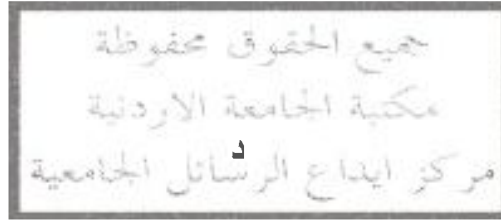 جميع الحقوق محفوظة
مكتبة الجامعة الاردنية
مركز ايداع الرسائل الجامعية
د